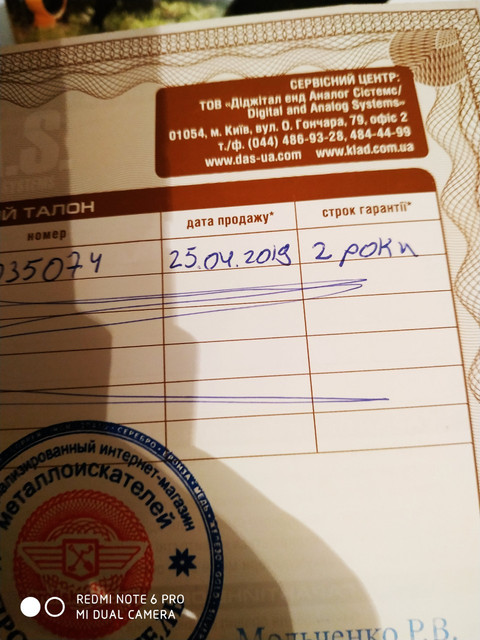 СЕРВІСНИЙ ЦЕНТР:
ТОВ «Діджітал енд Аналог Сістемс/
Digital and Analog Systems»
01054, м. Київ, вул. О. Гончара, 79, офіс 2
т./ф. (044) 486-93-28, 484-44-99
www.das-ua.com www.klad.com.ua
.S.
SYSTEMS
ИЙ ТАЛОН
номер
дата продажу*
строк гарантії*
035074
25.04.2019
2 роки
СЕРЕБРО • БРОНЗА • МЕДЬ •
ализированный интернет-магазин
металлоискателей
Мельченко Р.В.
REDMI NOTE 6 PRO
MI DUAL CAMERA